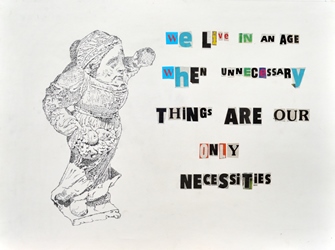 We Live IN AN AGE
WHEN UNNECESSARY
THINGS ARE OUR
ONLY
NECESSITiES